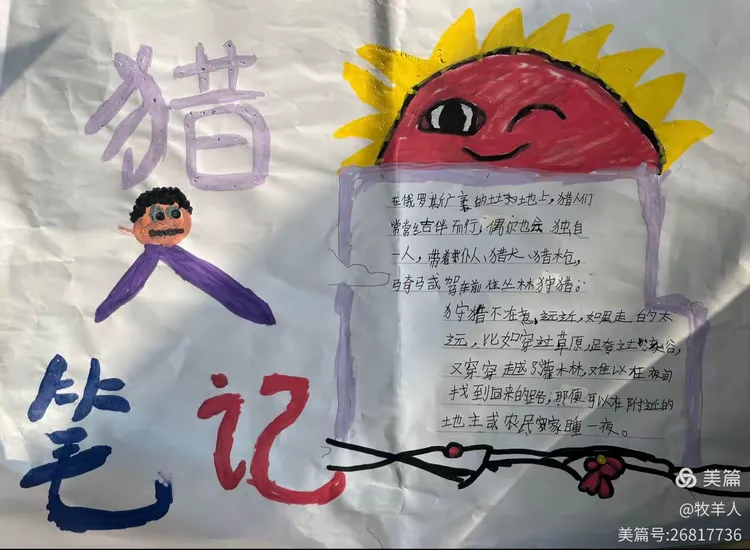 猎
人
笔 记
在俄罗斯广袤的土地上，猎人们
常常结伴而行，偶尔也会 独自
一人，带着仆人、猎犬、猎枪，
骑马或驾车前往丛林狩猎。
狩猎不在意远近，如果走的太
远，比如穿过草原，
又穿 越了灌木林，难以在夜间
找到回来的路，那便可以在附近的
地主或农民家睡一夜。
美篇
@牧羊人
美篇号:26817736